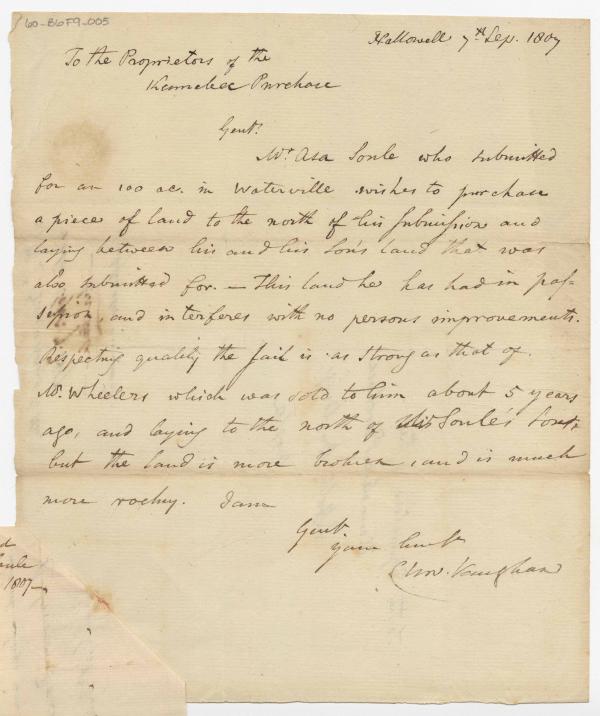 60-B6F9-005
Hallowell 7th Sep. 1807
To the Proprietors of the
Kennebec Purchase
Gent.
Mr. Asa Soule who submitted
for an 100 ac. in Waterville wishes to purchase
a piece of land to the north of his submission and
laying between his and his son's land that was
also submitted for. — This land he has had in pos-
session, and interferes with no persons improvements.
Respecting quality the soil is as strong as that of
Mr. Wheelers which was sold to him about 5 years
ago, and laying to the north of Soule's
but the land is more broken, and is much
more rocky. I am
Gent.
your
Chas. Vaughan
1807